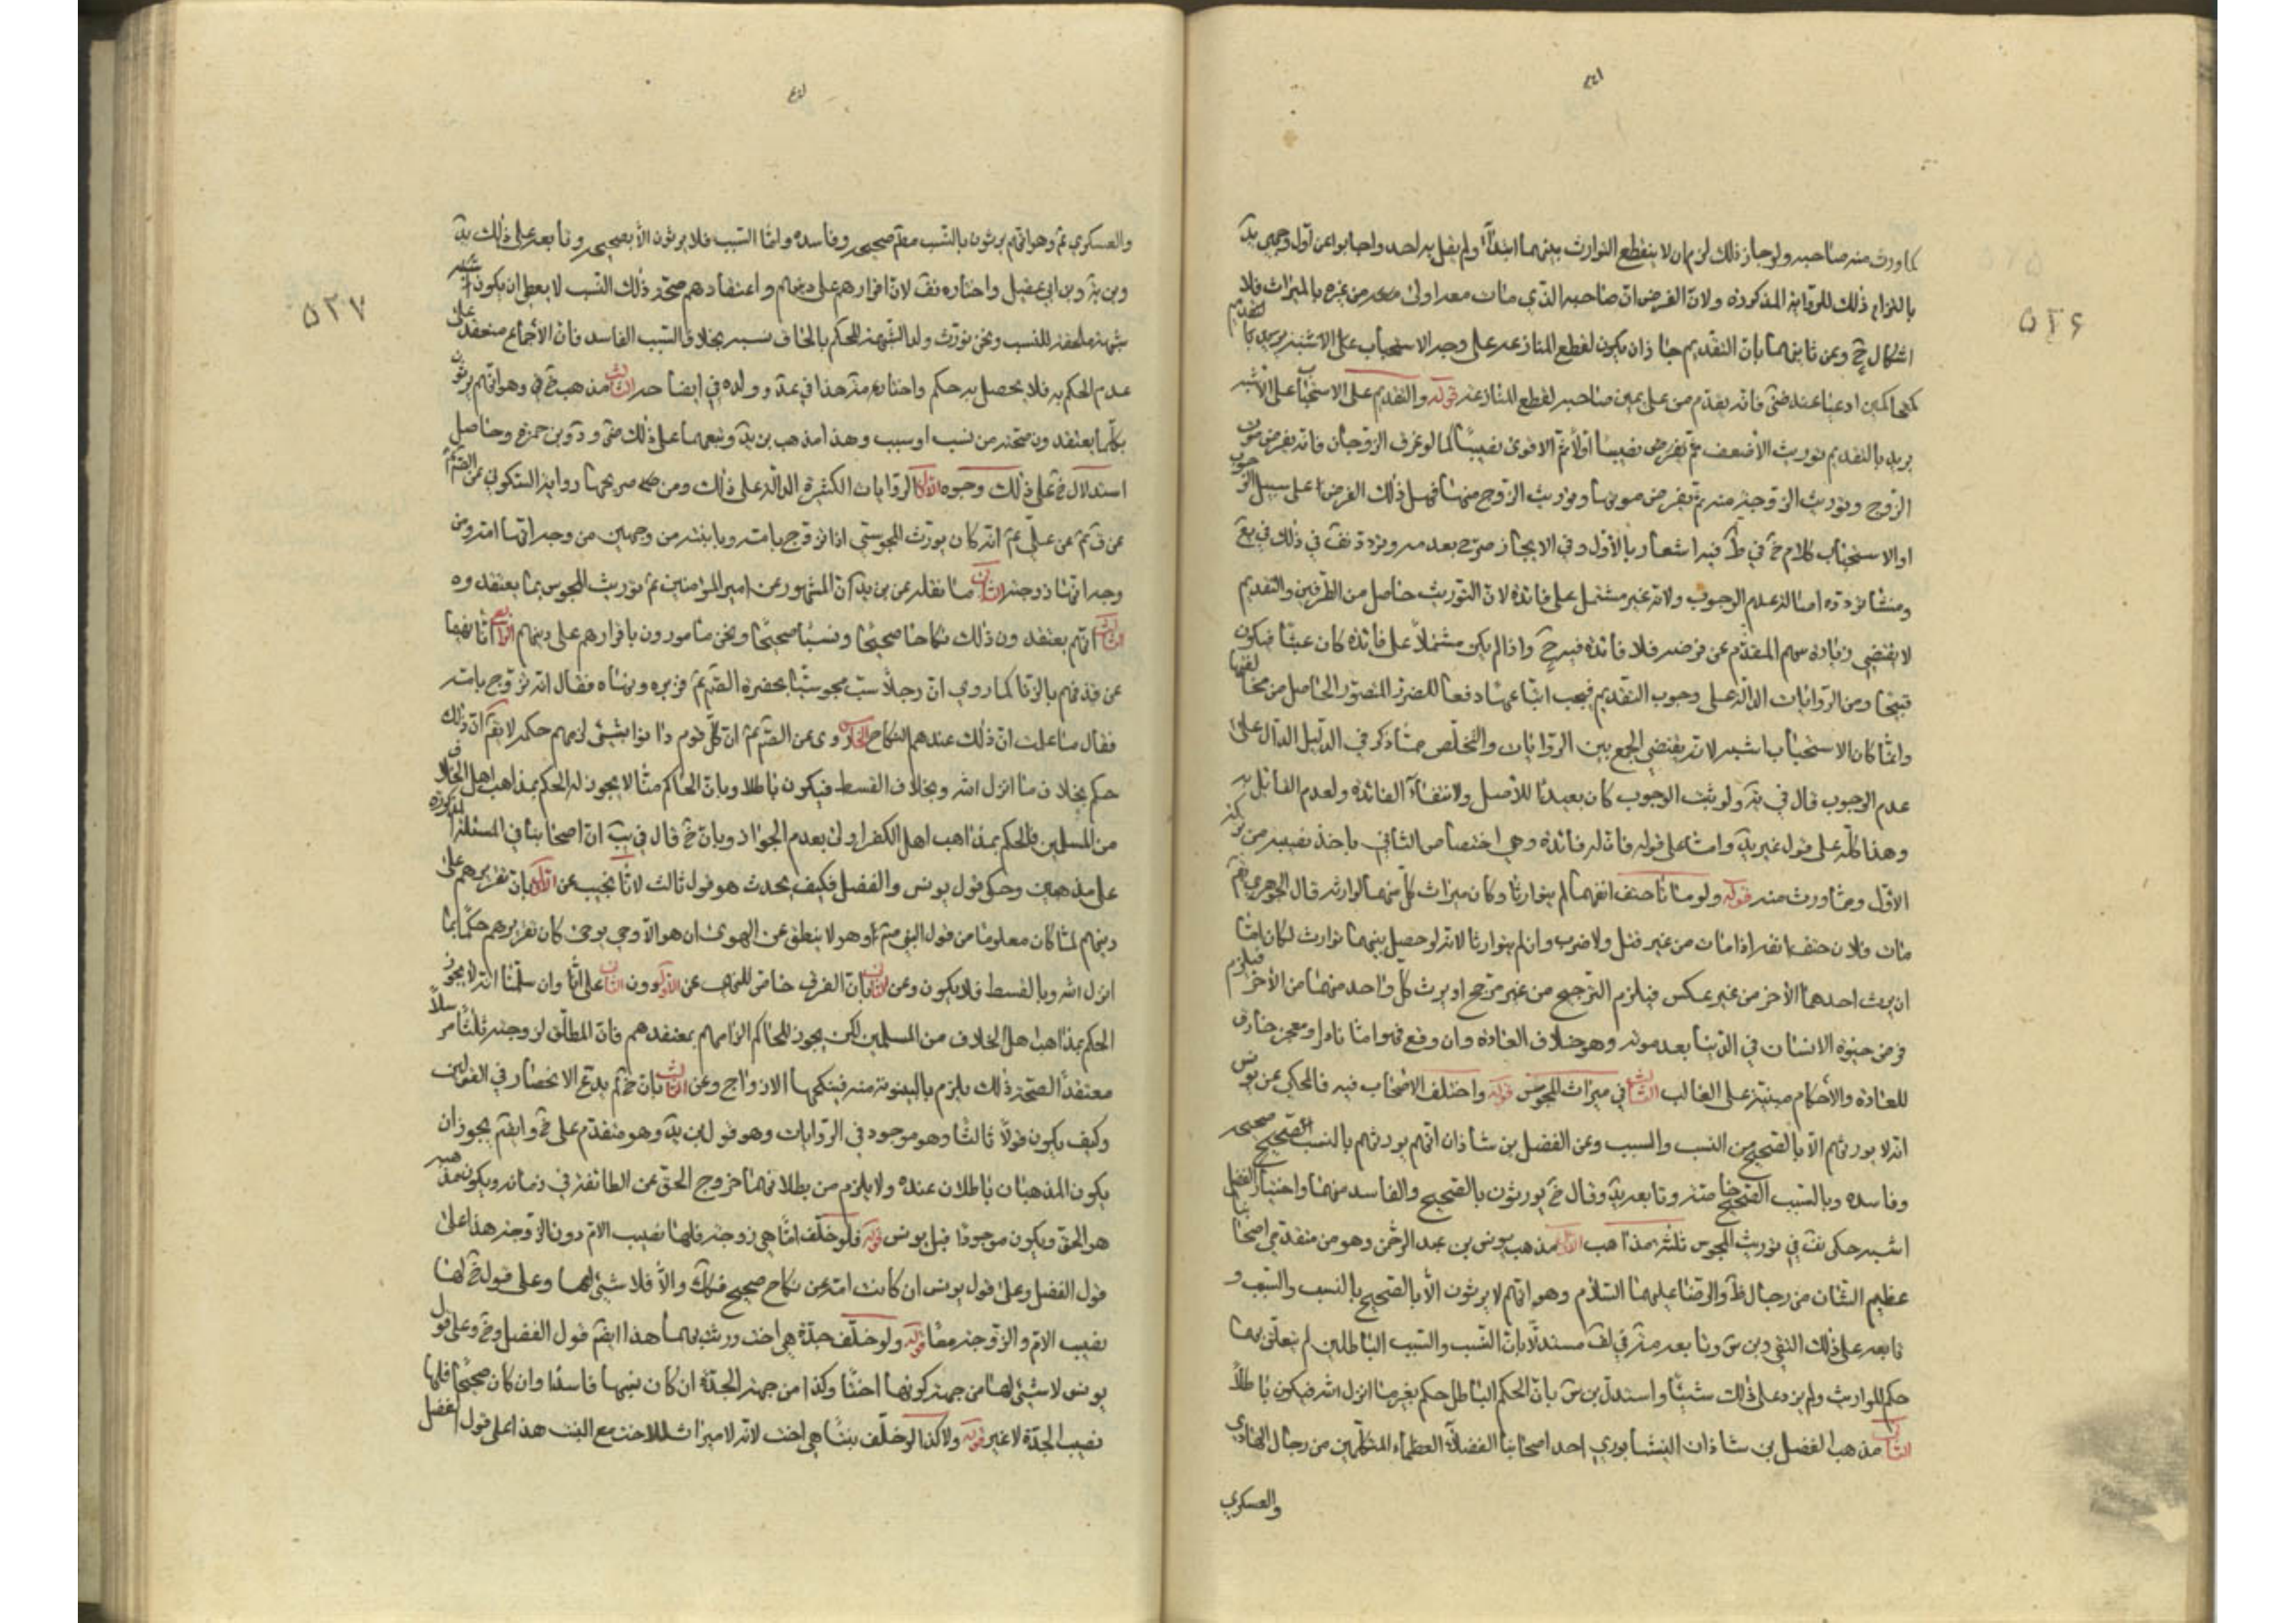 ٥٢٦
لما ورث منه صاحبه ولو جاز ذلك لزم ان لا ينقطع التوارث بينهما ابداً ولم يقل به احد واجابوا عن اول وجهي يد
بالتزام ذلك للرواية المذكورة ولان الفرض ان صاحبه الذي مات معه اولى من غيره بالميراث فلا
اشكال ح وعن ثانيهما بان التقديم جاز ان يكون لقطع المنازعة على وجه الاستحباب على الاشبه
ادعيا عند فانه يقدم من على يمين صاحبه لقطع المنازعة قوله والتقديم على الاستحباب على الاشبه
يريد بالتقديم توريث الاضعف ثم يفرض نصيبا اولا ثم الاقوى نصيبا كما لو غرق الزوجان فانه يفرض موت
الزوج وتوريث الزوجة منه ثم يفرض موتها وتوريث الزوج منها فهل ذلك الفرض على سبيل الوجوب
او الاستحباب كلام خ في ط فيه اشعار بالاول وفي الايجاز صرح بعدمه وتردد نف في ذلك في يع
ومنشا تردده اصالة عدم الوجوب ولانه غير مشتمل على فائدة لان التوريث حاصل من الطرفين والتقديم
لا يقتضي زيادة سهم المقدم عن فرضه فلا فائدة فيه ح واذا لم يكن مشتملاً على فائدة كان عبثا فيكون
قبيحا ومن الروايات الدالة على وجوب التقديم فيجب اتباعها دفعا للضرر المتصور الحاصل من مخالفتها
وانما كان الاستحباب اشبه لانه يقتضي الجمع بين الروايات والتخلص مما ذكر في الدليل الدال على
عدم الوجوب قال في ير ولو ثبت الوجوب كان تعبدا للاصل ولانتفاء الفائدة ولعدم القائل به
وهذا كله على قول غير يد واما على قوله فان له فائدة وهي اختصاص الثاني باخذ نصيبه من تركة
الاول ومما ورث منه قوله ولو ماتا حتف انفهما لم يتوارثا وكان ميراث كل منهما لوارثه قال الجوهري يقم
مات فلان حتف انفه اذا مات من غير قتل ولا ضرب وان لم يتوارثا لانه لو حصل بينهما توارث لكان اما
ان يرث احدهما الاخر من غير عكس فيلزم الترجيح من غير مرجح او يرث كل واحد منهما من الاخر فيلزم
فرض حيوة الانسان في الدنيا بعد موته وهو خلاف العادة وان وقع فهو اما نادر او معجز خارق
للعادة والاحكام مبنية على الغالب الثالث في ميراث المجوس قوله واختلف الاصحاب فيه فالمحكي عن يونس
انه لا يورثهم الا بالصحيح من النسب والسبب وعن الفضل بن شاذان انهم يورثهم بالنسب صحيحه
وفاسده وبالسبب الصحيح خاصة وتابعه يد وقال خ يورثون بالصحيح والفاسد منهما واختيار الفضل
اشبه حكى نف في توريث المجوس ثلثة مذاهب الاول مذهب يونس بن عبد الرحمن وهو من متقدمي اصحابنا
عظيم الشان من رجال ظم والرضا عليهما السلام وهو انهم لا يرثون الا بالصحيح بالنسب والسبب و
تابعه على ذلك التقي وبن س وتابعه منه في لف مستدلا بان النسب والسبب الباطلين لم يتعلق بهما
حكم للوارث ولم يزد على ذلك شيئا واستدل بن س بان الحكم الباطل حكم بغير ما انزل الله فيكون باطلاً
الثاني مذهب الفضل بن شاذان النيشابوري احد اصحابنا الفضلاء العظماء المتكلمين من رجال الهادي
والعسكري
٥٢٧
والعسكري ع وهو انهم يرثون بالنسب معلم صحيحه وفاسده واما السبب فلا يرثون الا بصحيحه وتابعه على ذلك يد
وبن بر وبن ابي عقيل واختاره نف لان اقرارهم على دينهم واعتقادهم صحة ذلك النسب لا يعطل ان يكون
شبهة ملحقة للنسب ونحن نورث ولد الشبهة للحكم بالحاق نسبه بخلاف السبب الفاسد فان الاجماع منعقد على
عدم الحكم به فلا يحصل به حكم واختاره منه هذا في عد وولده في ايضاحه الثالث مذهب خ في وهو انهم يرثون
بكلما يعتقدون صحته من نسب او سبب وهذا مذهب بن يد وتبعهما على ذلك ضي ود وبن حمزة وحاصل
استدلال خ على ذلك وجوه الاول الروايات الكثيرة الدالة على ذلك ومن صريحها رواية السكوني عن الصم
عن ق ع عن علي ع انه كان يورث المجوسي اذا تزوج بامه وبابنته من وجهين من وجه انها امه ومن
وجه انها زوجته الثاني ما نقله عن بن يد ان المشهور عن امير المؤمنين ع توريث المجوس بما يعتقدوه
الثالث انهم يعتقدون ذلك نكاحا صحيحا ونسبا صحيحا ونحن مامورون باقرارهم على دينهم الرابع انا نهينا
عن قذفهم بالزنا كما روي ان رجلاً سب مجوسيا بحضرة الصم ع فزبره ونهاه فقال انه تزوج بامه
فقال ما علمت ان ذلك عندهم النكاح الخامس روى عن الصم ع ان كل قوم دانوا بشئ لزمهم حكمه لا يقم ان ذلك
حكم بخلاف ما انزل الله وبخلاف القسط فيكون باطلا وبان الحاكم منا لا يجوز له الحكم بمذاهب اهل الخلاف
من المسلمين فالحكم بمذاهب اهل الكفر اولى بعدم الجواز وبان خ قال في يب ان اصحابنا في المسئلة المذكورة
على مذهبين وحكى قول يونس والفضل فكيف يحدث هو قول ثالث لانا نجيب عن الاول بان تقريرهم على
دينهم لما كان معلوما من قول النبي ص وهو لا ينطق عن الهوى ان هو الا وحي يوحى كان تقريرهم حكما بما
انزل الله وبالقسط فلا يكون وعن الثاني بان الفرق خاص للمذهب عن الاول دون الثاني على انا وان سلمنا انه لا يجوز
الحكم بمذاهب اهل الخلاف من المسلمين لكن يجوز للحاكم الزامهم بمعتقدهم فان المطلق لزوجته ثلثا مرسلاً
معتقداً لصحة ذلك يلزم بالبينونة منه فينكحها الازواج وعن الثالث بان خ لم يدع الانحصار في القولين
وكيف يكون قولاً ثالثا وهو موجود في الروايات وهو قول بن يد وهو متقدم على خ وايضم يجوز ان
يكون المذهبان باطلان عنده ولا يلزم من بطلانهما خروج الحق عن الطائفة في زمانه ويكون مذهبه
هو الحق ويكون موجودا قبل يونس قوله فلو خلف اما هي زوجته فلها نصيب الام دون الزوجة هذا على
قول الفضل وعلى قول يونس ان كانت امه عن نكاح صحيح فكك والا فلا شئ لها وعلى قول خ لها
نصيب الام والزوجة معا قوله ولو خلف جدة هي اخت ورثت بهما هذا ايضم قول الفضل وخ وعلى قول
يونس لا شئ لها من جهة كونها اختا وكذا من جهة الجدة ان كان نسبها فاسدا وان كان صحيحا فلها
نصيب الجدة لا غير قوله ولا كذا لو خلف بنتا هي اخت لانه لا ميراث للاخت مع البنت هذا على قول الفضل